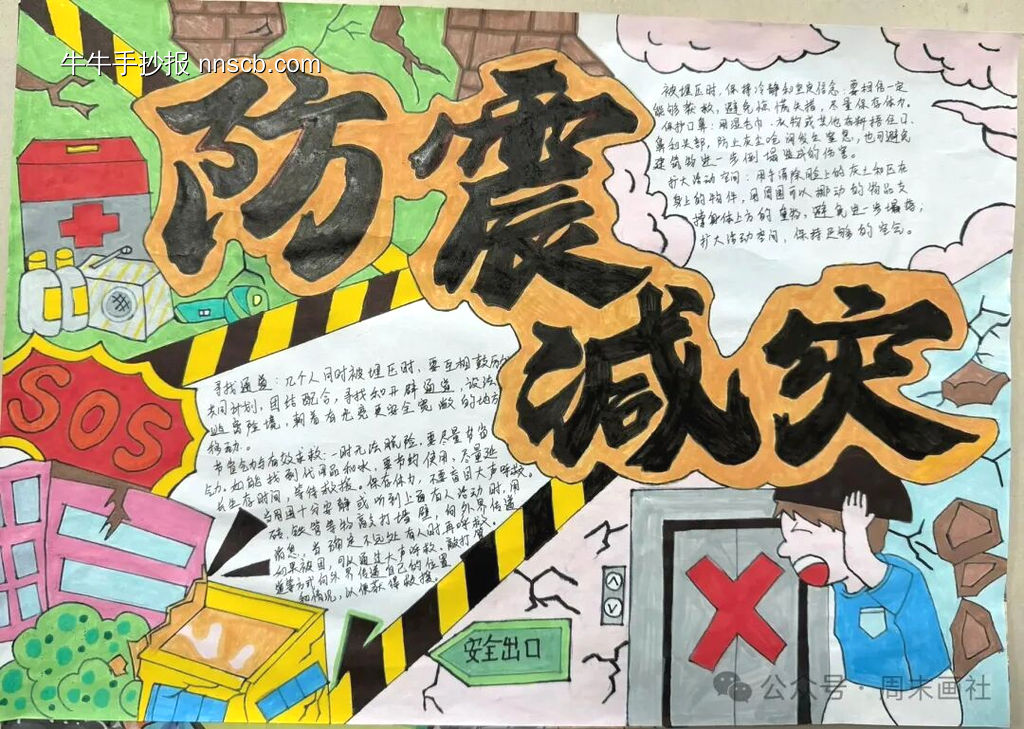 牛牛手抄报 nnscb.com
防震
减灾
被埋压时,保持冷静和坚定信念,要相信一定
能够获救,避免惊慌失措,尽量保存体力。
保护口鼻:用湿毛巾、衣物或其他布料捂住口、
鼻和头部,防止灰尘呛闷发生窒息,也可避免
建筑物进一步倒塌造成的伤害。
扩大活动空间:用手清除脸上的灰土和压在
身上的物件,用周围可以挪动的物品支
撑身体上方的重物,避免进一步塌落;
扩大活动空间,保持足够的空气。
寻找通道:几个人同时被埋压时,要互相鼓励
共同计划,团结配合,寻找和开辟通道,设法
逃离险境,朝着有光亮更安全宽敞的地方
移动。
节省气力与有效求救:一时无法脱险,要尽量节省
气力,如能找到代用品和水,要节约使用,尽量延
长生存时间,等待救援。保存体力,不要盲目大声呼救。
当周围十分安静或听到上面有人活动时,用
砖、铁管等物敲打墙壁,向外界传递
消息。当确定不远处有人时再呼救。
如果被困,可以通过大声呼救、敲打管
道等方式向外界传递自己的位置
和情况,以便获得救援。
SOS
安全出口
公众号·周末画社